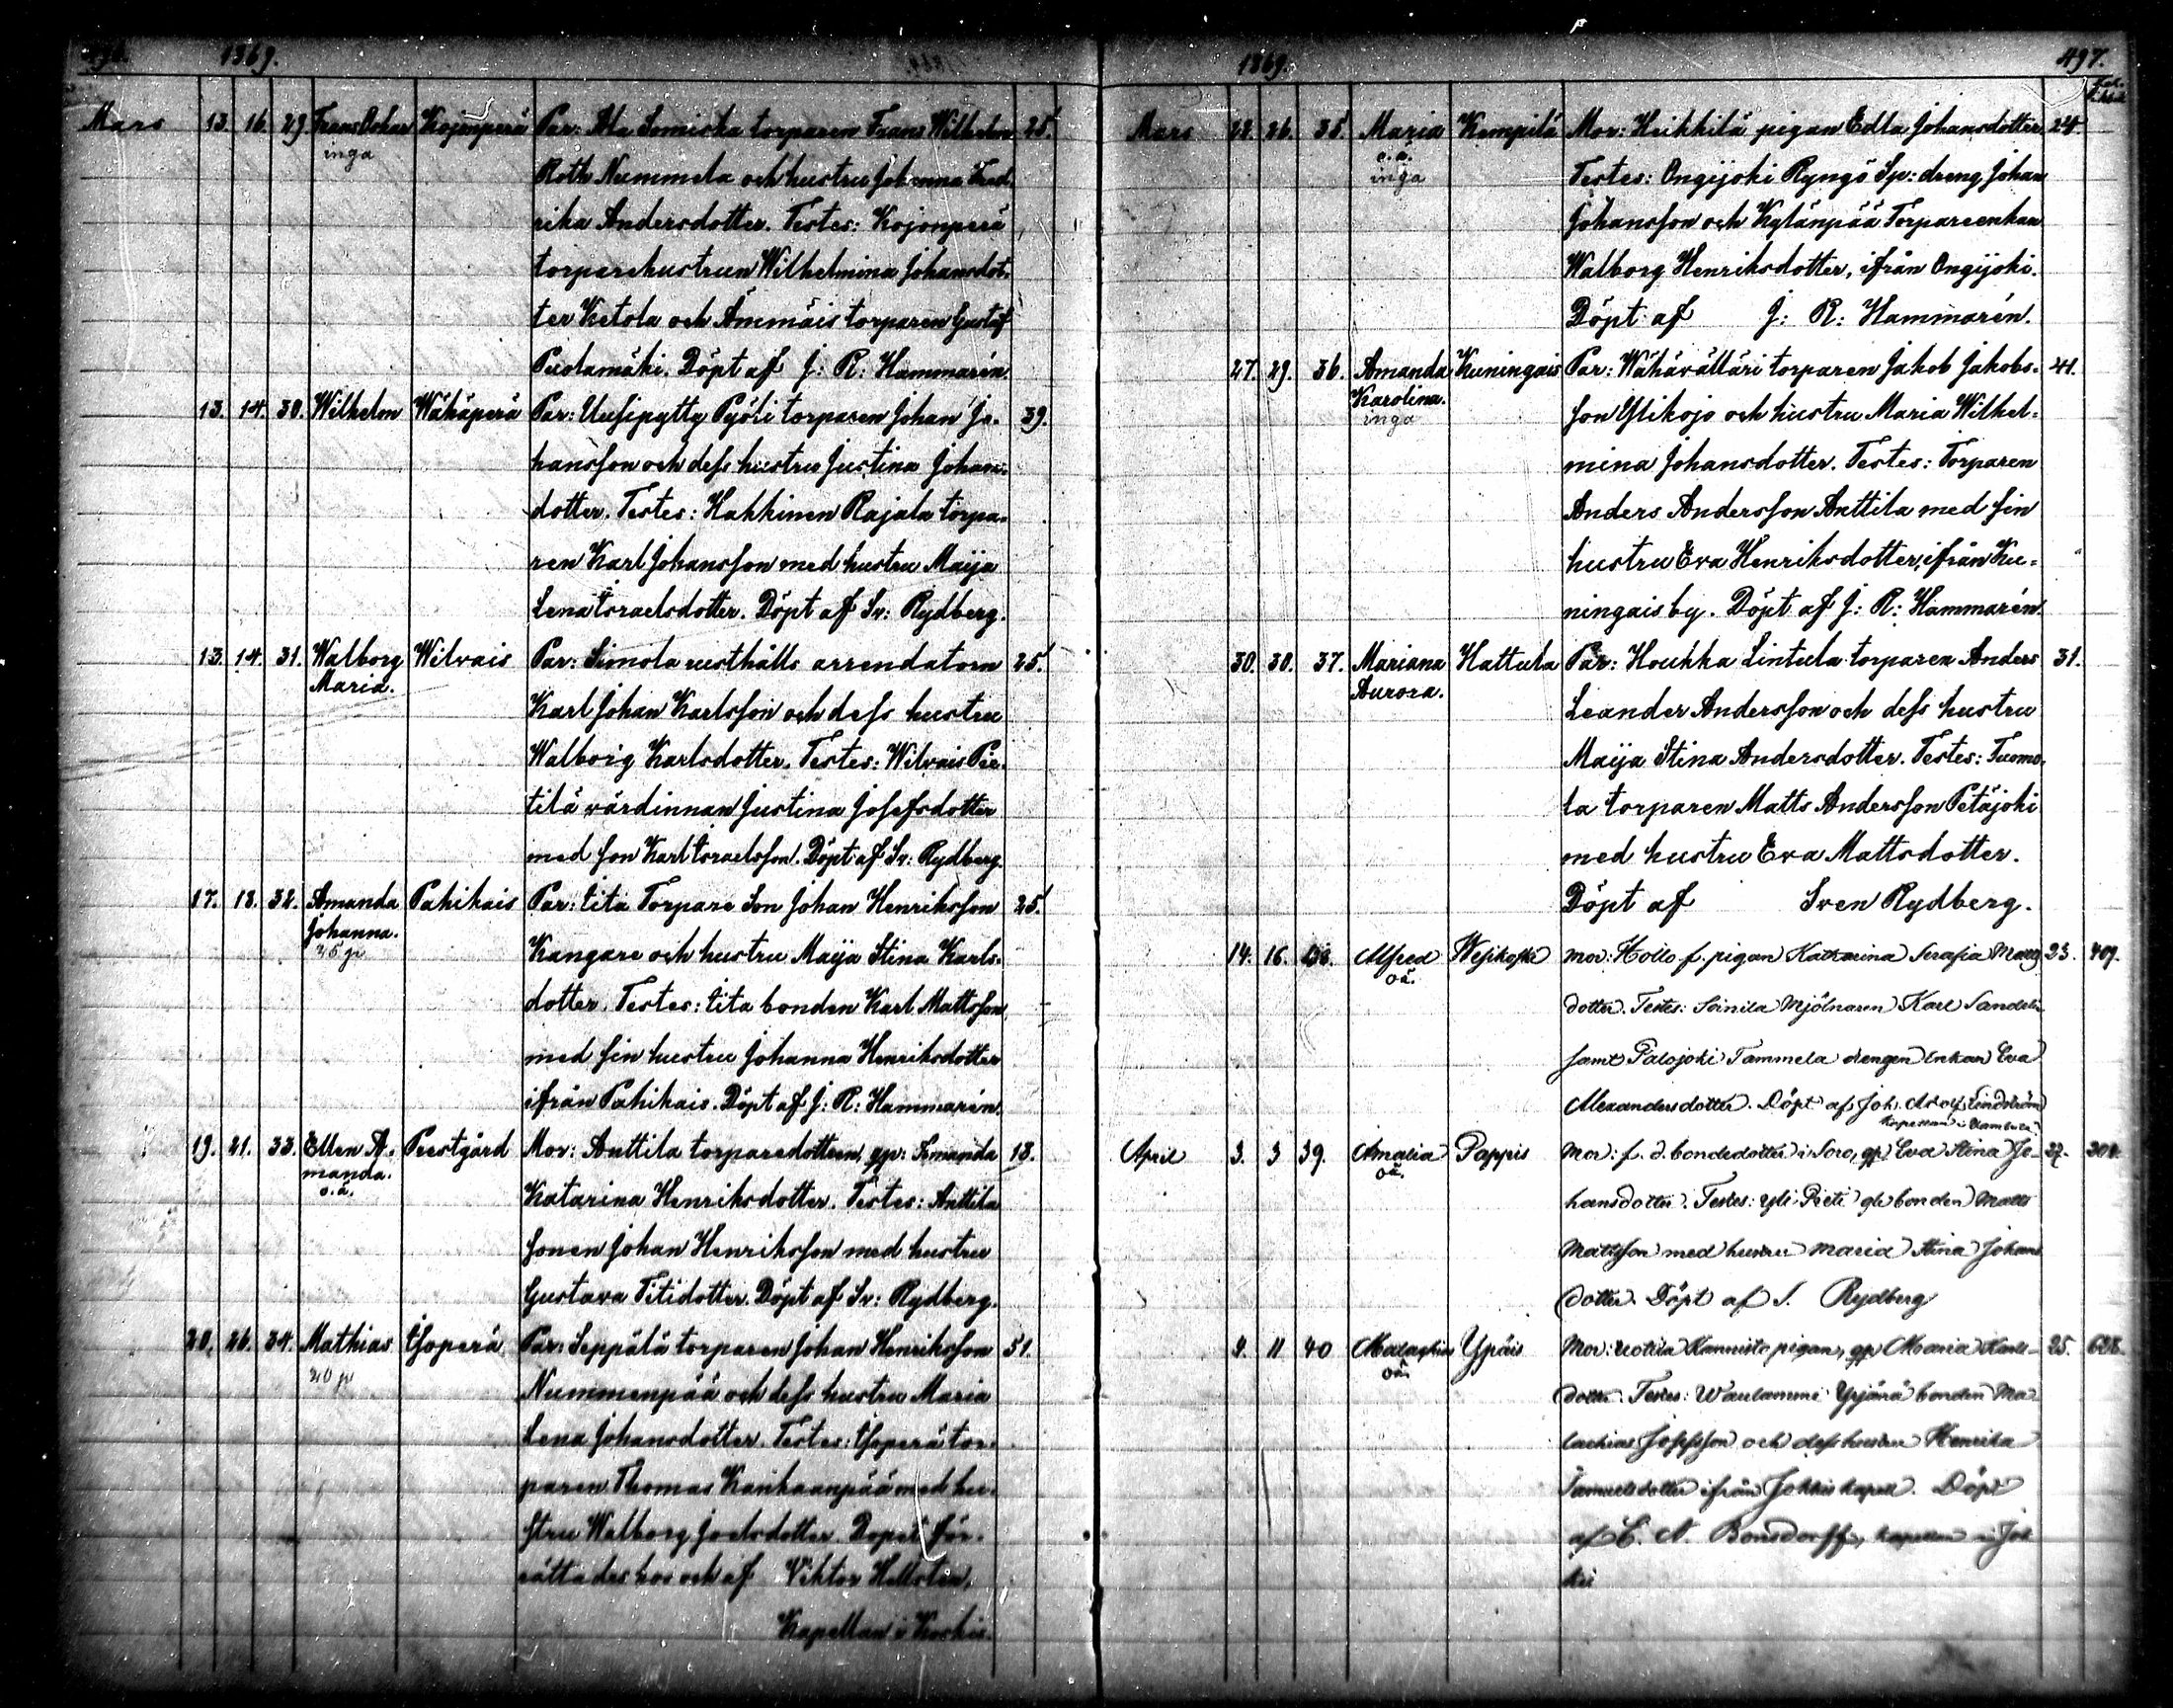 1869.
Mars 13. 16. 29. Frans Oskar Kojonperä Par: Ala Somiska torparen Frans Wilhelm 25.
inga Roth Nummela och hustru Johanna Fred-
rika Andersdotter. Testes: Kojonperä
torparehustrun Wilhelmina Johansdot-
ter Ketola och Ämmäis torparen Gustaf
Puolamäki. Döpt af J: R: Hammarén.
13. 14. 30. Wilhelm Wähäperä Par: Uusipytty Pyöli torparen Johan Jo- 39.
hansson och dess hustru Justina Johans-
dotter. Testes: Hakkinen Rajala torpa-
ren Karl Johansson med hustru Maija
Lena Israelsdotter. Döpt af Sv: Rydberg.
13. 14. 31. Walborg Wilvais Par: Simola rusthålls arrendatorn 25.
Maria. Karl Johan Karlsson och dess hustru
Walborg Karlsdotter. Testes: Wilvais Per-
tilä värdinnan Justina Josefsdotter
med son Karl Israelsson. Döpt af Sv: Rydberg.
17. 18. 32. Amanda Pahikais Par: Iita Torpare Son Johan Henriksson 25.
Johanna. Kangare och hustru Maija Stina Karls-
dotter. Testes: Iita bonden Karl Mattsson
med sin hustru Johanna Henriksdotter
ifrån Pahikais. Döpt af J: R: Hammarén.
19. 21. 33. Ellen A- Prestgård Mor: Anttila torparedottern, gp: Amanda 18.
manda. Katarina Henriksdotter. Testes: Anttila
o.ä. sonen Johan Henriksson med hustru
Gustava Titidotter. Döpt af Sv: Rydberg.
20. 26. 34. Mathias Isoperä Par: Seppälä torparen Johan Henriksson 51.
Nummenpää och dess hustru Maria
Lena Johansdotter. Testes: Isoperä tor-
paren Thomas Kankaanpää med hu-
stru Walborg Joelsdotter. Dopet för-
rättades hos och af Viktor Hellsten,
Kapellan i Koskis.
1869. 497.
Mars 22. 26. 35. Maria Kempilä Mor: Heikkilä pigan Edla Johansdotter 24.
o.ä. Testes: Ongijoki Ryngö Sp: dreng Johan
inga Johansson och Kylänpää Torpareenkan
Walborg Henriksdotter, ifrån Ongijoki.
Döpt af J: R: Hammarén.
27. 29. 36. Amanda Kuningais Par: Wähävälläri torparen Jakob Jakobs- 41.
Karolina. son Ylikojo och hustru Maria Wilhel-
inga mina Johansdotter. Testes: Torparen
Anders Andersson Anttila med sin
hustru Eva Henriksdotter, ifrån Ku-
ningais by. Döpt af J: R: Hammarén.
30. 30. 37. Mariana Hattula Par: Houkka Lintula torparen Anders 31.
Aurora. Leander Andersson och dess hustru
Maija Stina Andersdotter. Testes: Tuomo-
la torparen Matts Andersson Petäjoki
med hustru Eva Mattsdotter.
Döpt af Sven Rydberg.
14. 16. 38. Alfred Wesikoski Mor: Hollo f. pigan Katharina Serafia Matts 23. 409.
oä. dotter. Testes: Soinila Mjölnaren Karl Sandelin
samt Palojoki Tammela drengen Enkan Eva
Alexandersdotter. Döpt af Joh. Adolf Lindström
April 3. 3 39. Amalia Pappis Mor: f. d. bondedotter i Soro, gp. Eva Stina Jo- 27.
oä. hansdotter. Testes: Yli Pieti bonden Matts
Mattsson med hustru Maria Stina Johans
dotter. Döpt af S. Rydberg
9. 11 40 Malachias Ypäis Mor: Uotila Kannisto pigan, gp Maria Karls- 25.
oä. dotter. Testes: Waulammi Ypjärä bonden Ma-
lachias Josefsson och dess hustru Henrika
Samuelsdotter ifrån Jokkis kapell. Döpt
af C. N. Bonsdorff, kapellan i Jok
kis